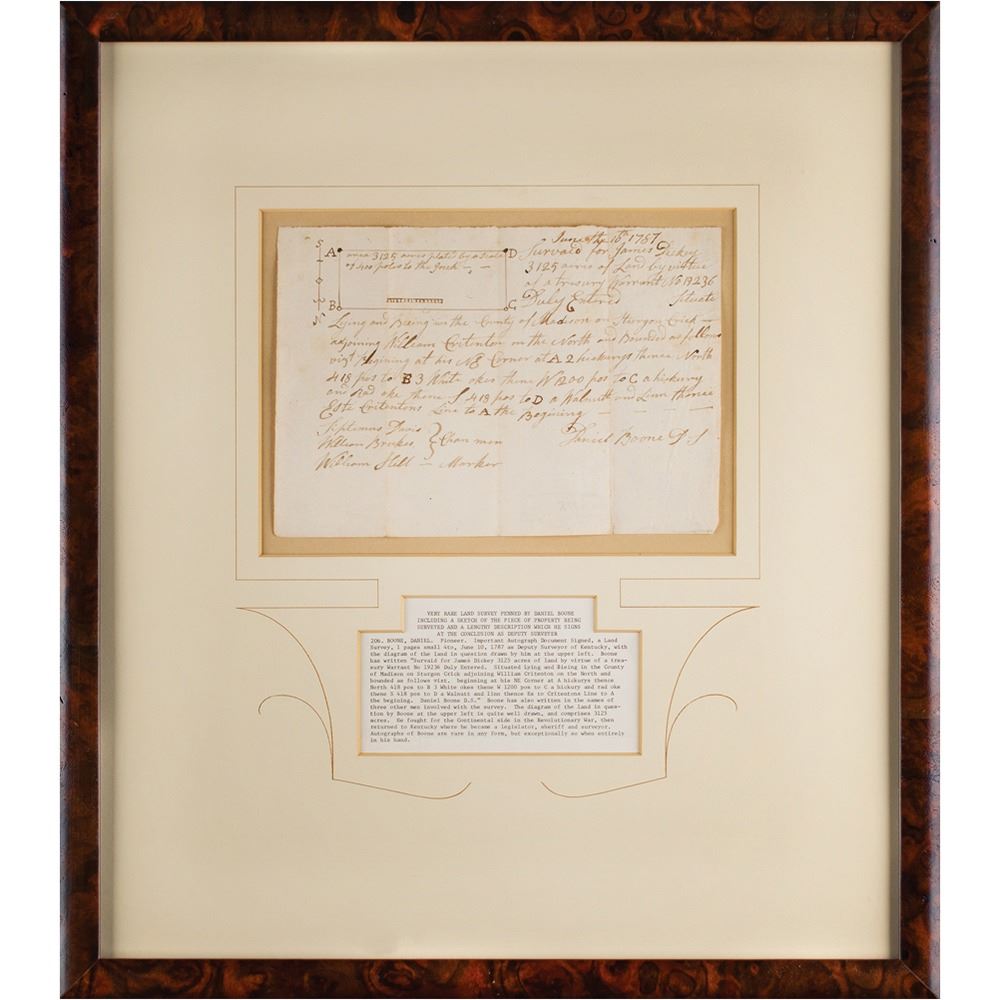 June the 10th 1787
Survaid for James Dickey
3125 acres of Land by virtue
of a tresury Warrant No 19236
Duly Entered Situate
S
N
A D
area 3125 acres plated by a Scale
of 400 poles to the Inch
B C
Lying and Being in the County of Madison on Sturgon Crick
adjoining William Critenton on the North and Bounded as follows
vizt Begining at his NE Corner at A 2 hickurys thence North
418 pos to B 3 White okes thence W 1200 pos to C a hickury
and Rad oke thence S 418 pos to D a Walnutt and Linn thence
Este Critentons Line to A the Begining
Septemus Davis
William Brookes } Chan men Daniel Boone D S
William Hill — Marker
VERY RARE LAND SURVEY PENNED BY DANIEL BOONE
INCLUDING A SKETCH OF THE PIECE OF PROPERTY BEING
SURVEYED AND A LENGTHY DESCRIPTION WHICH HE SIGNS
AT THE CONCLUSION AS DEPUTY SURVEYER
206. BOONE, DANIEL. Pioneer. Important Autograph Document Signed, a Land
Survey, 1 pages small 4to, June 10, 1787 as Deputy Surveyor of Kentucky, with
the diagram of the land in question drawn by him at the upper left. Boone
has written "Survaid for James Dickey 3125 acres of land by virtue of a trea-
sury Warrant No 19236 Duly Entered. Situated Lying and Bieing in the County
of Madison on Sturgon Crick adjoining William Critenton on the North and
bounded as follows vist. beginning at his NE Corner at A hickurys thence
North 418 pos to B 3 White okes thene W 1200 pos to C a hickury and rad oke
thene S 418 pos to D a Walnutt and linn thence Es to Critentons line to A
the begining. Daniel Boone D.S." Boone has also written in the names of
three other men involved with the survey. The diagram of the land in ques-
tion by Boone at the upper left is quite well drawn, and comprises 3125
acres. He fought for the Continental side in the Revolutionary War, then
returned to Kentucky where he became a legislator, sheriff and surveyor.
Autographs of Boone are rare in any form, but exceptionally so when entirely
in his hand.